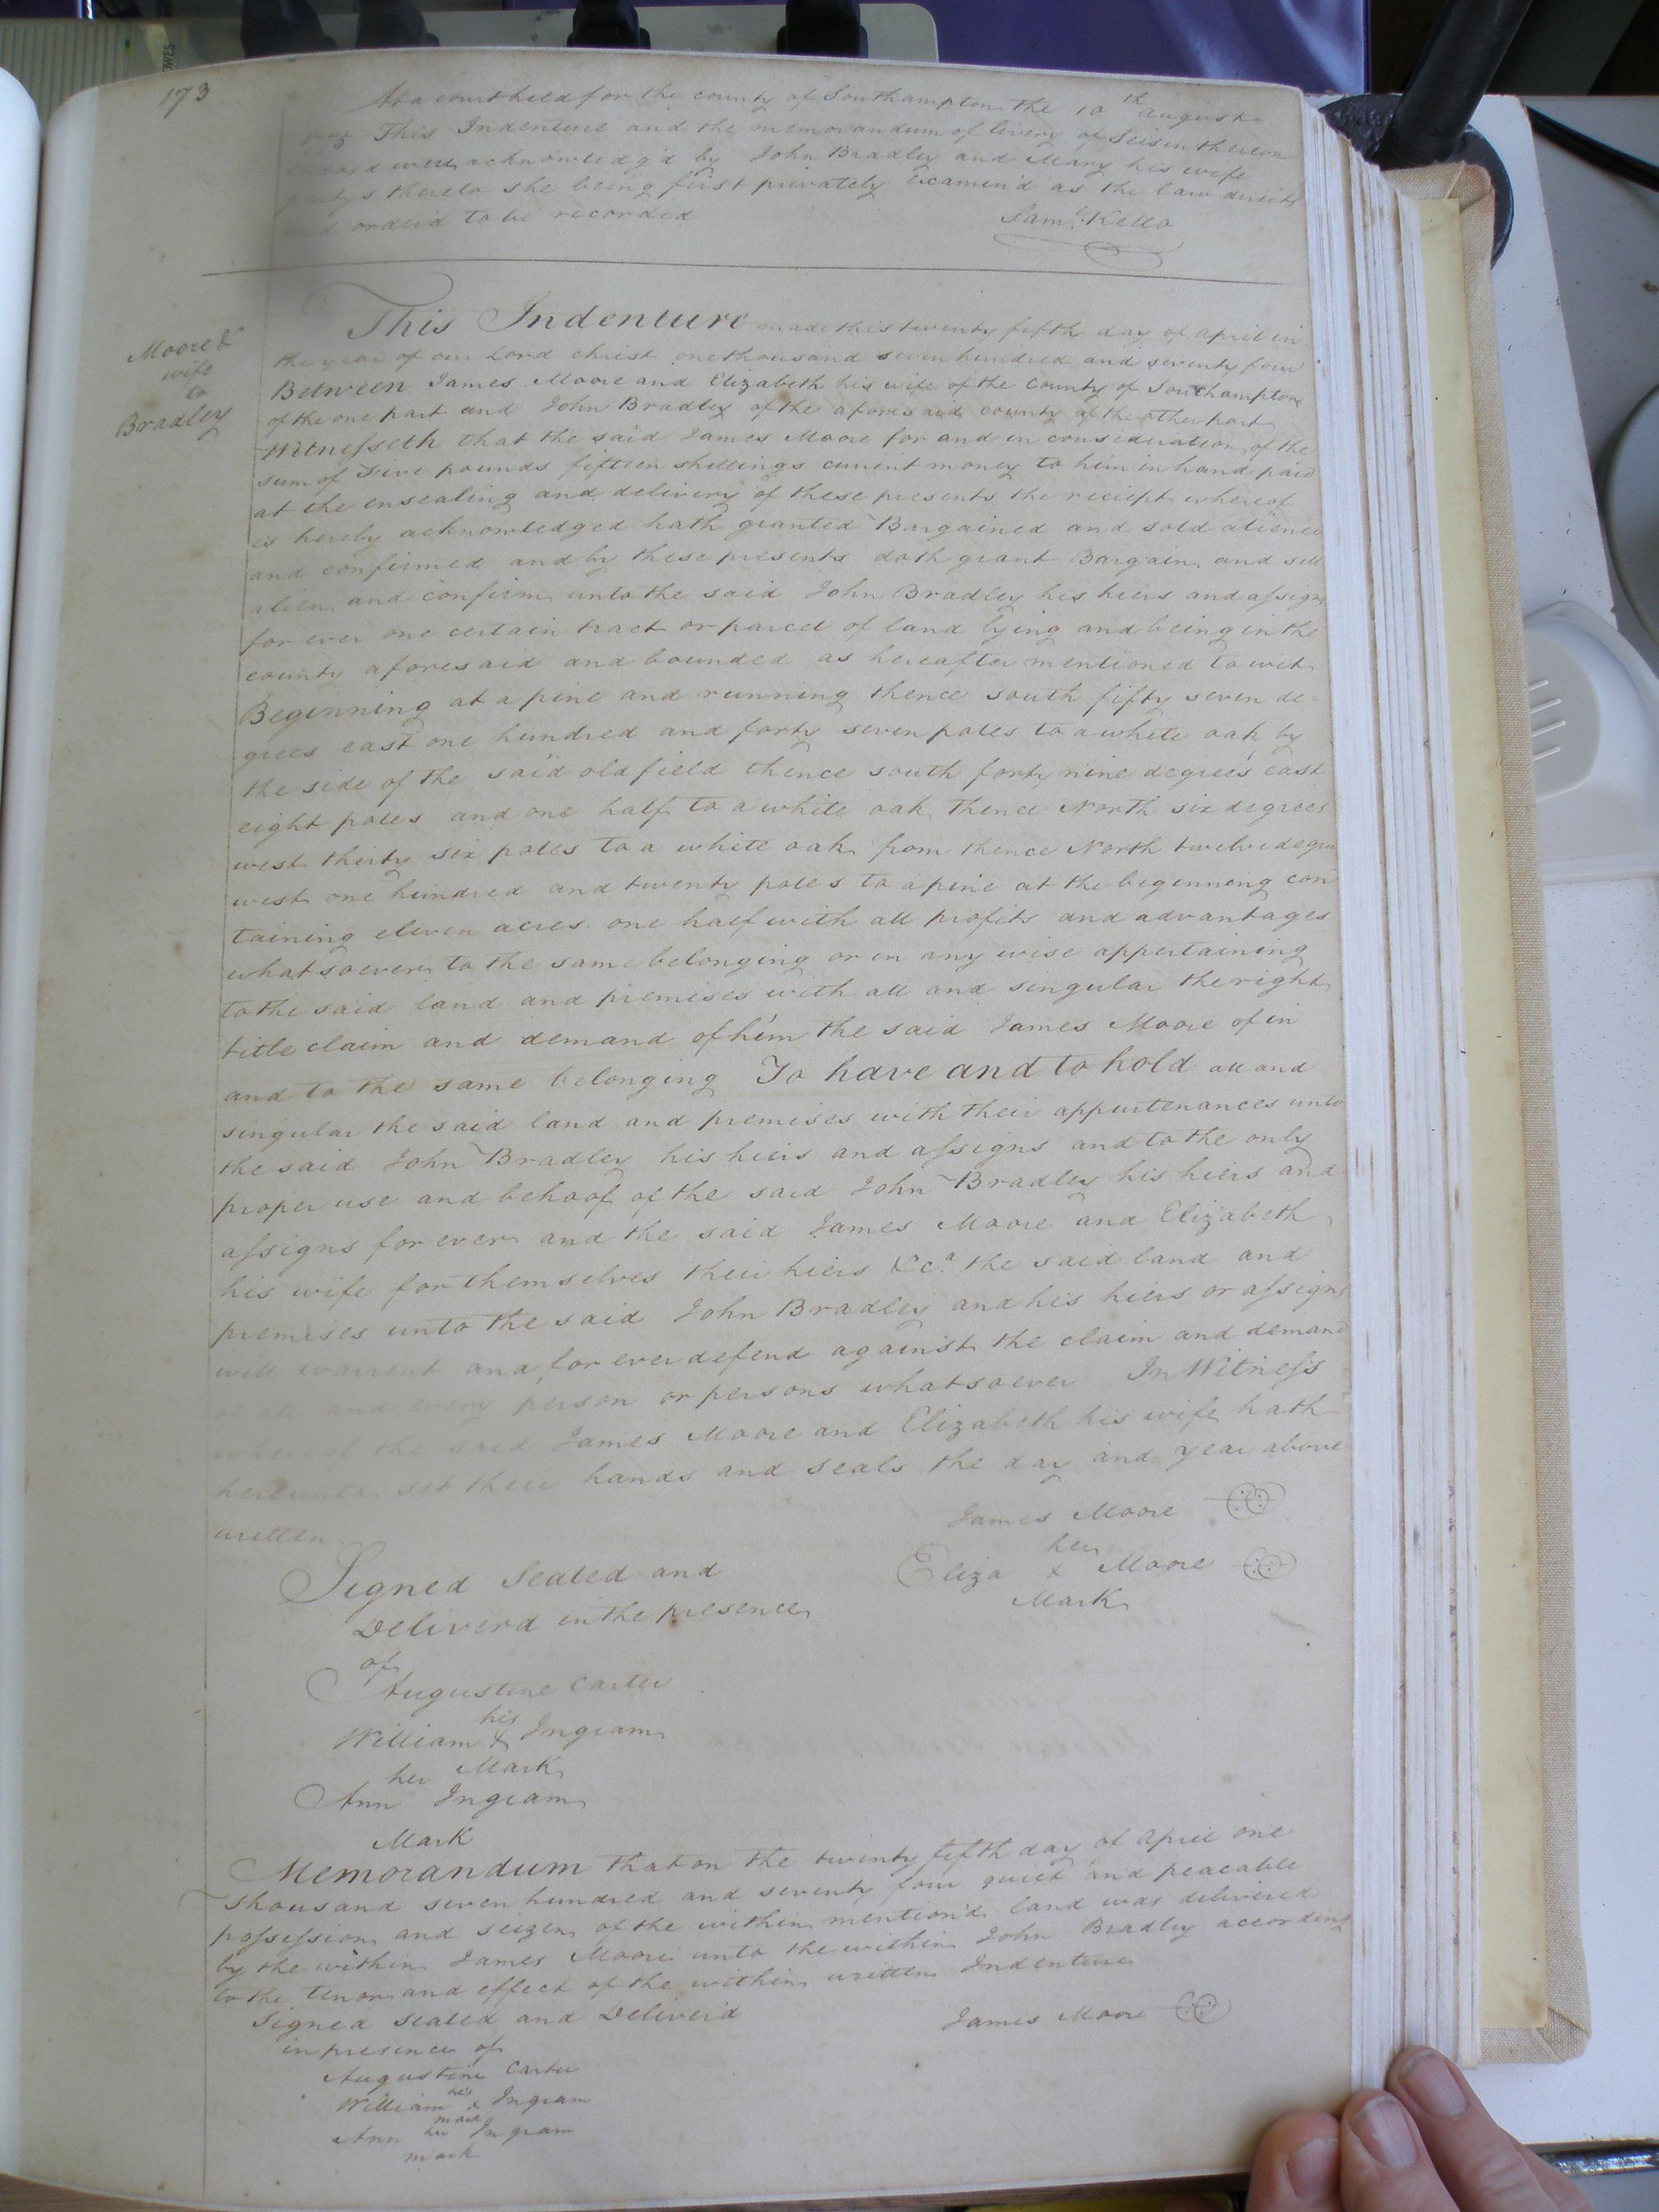 173
At a court held for the county of Southampton the 10th august
This Indenture and the memorandum of livery of Seisin thereon
were acknowledg'd by John Bradley and Mary his wife
partys thereto she being first privately Examen'd as the law directs
orderd to be recorded
Saml. Kello
Moore &
wife
to
Bradley
This Indenture made this twenty fifth day of april in
the year of our Lord christ one thousand seven hundred and seventy four
Between James Moore and Elizabeth his wife of the County of Southampton
of the one part and John Bradley of the aforesaid county of the other part
Witnesseth that the said James Moore for and in consideration of the
sum of Five pounds fifteen shillings current money to him in hand paid
at the ensealing and delivery of these presents the reciept whereof
is hereby acknowledged hath granted Bargained and sold aliened
and confirmed and by these presents doth grant Bargain and sell
alien and confirm unto the said John Bradley his hiers and assigns
for ever one certain tract or parcel of land lying and being in the
county aforesaid and bounded as hereafter mentioned to wit
Beginning at a pine and running thence south fifty seven de
grees east one hundred and forty seven poles to a white oak by
the side of the said old field thence south forty nine degrees east
eight poles and one half to a white oak thence North six degrees
west thirty six poles to a white oak from thence North twelve degrees
west one hundred and twenty poles to a pine at the beginning con
taining eleven acres one half with all profits and advantages
whatsoever to the same belonging or in any wise appertaining
to the said land and premises with all and singular the right
title claim and demand of him the said James Moore of in
and to the same belonging To have and to hold all and
singular the said land and premises with their appurtenances unto
the said John Bradley his hiers and assigns and to the only
proper use and behoof of the said John Bradley his hiers and
assigns for ever and the said James Moore and Elizabeth
his wife for themselves their hiers &ca. the said land and
premises unto the said John Bradley and his hiers or assigns
will warrent and for ever defend against the claim and demand
of all and every person or persons whatsoever In Witness
whereof the said James Moore and Elizabeth his wife hath
hereunto set their hands and seals the day and year above
written
James Moore
her
Eliza x Moore
Mark
Signed Sealed and
Deliverd in the presence
of
Augustine Carter
his
William x Ingram
Mark
her
Ann Ingram
Mark
Memorandum that on the twenty fifth day of April one
thousand seven hundred and seventy four quiet and peacable
possession and seizen of the within mention'd land was delivered
by the within James Moore unto the within John Bradley according
to the tenor and effect of the within written Indenture
Signed Sealed and Deliver'd
James Moore
in presence of
Augustine Carter
his
William x Ingram
mark
her
Ann Ingram
mark